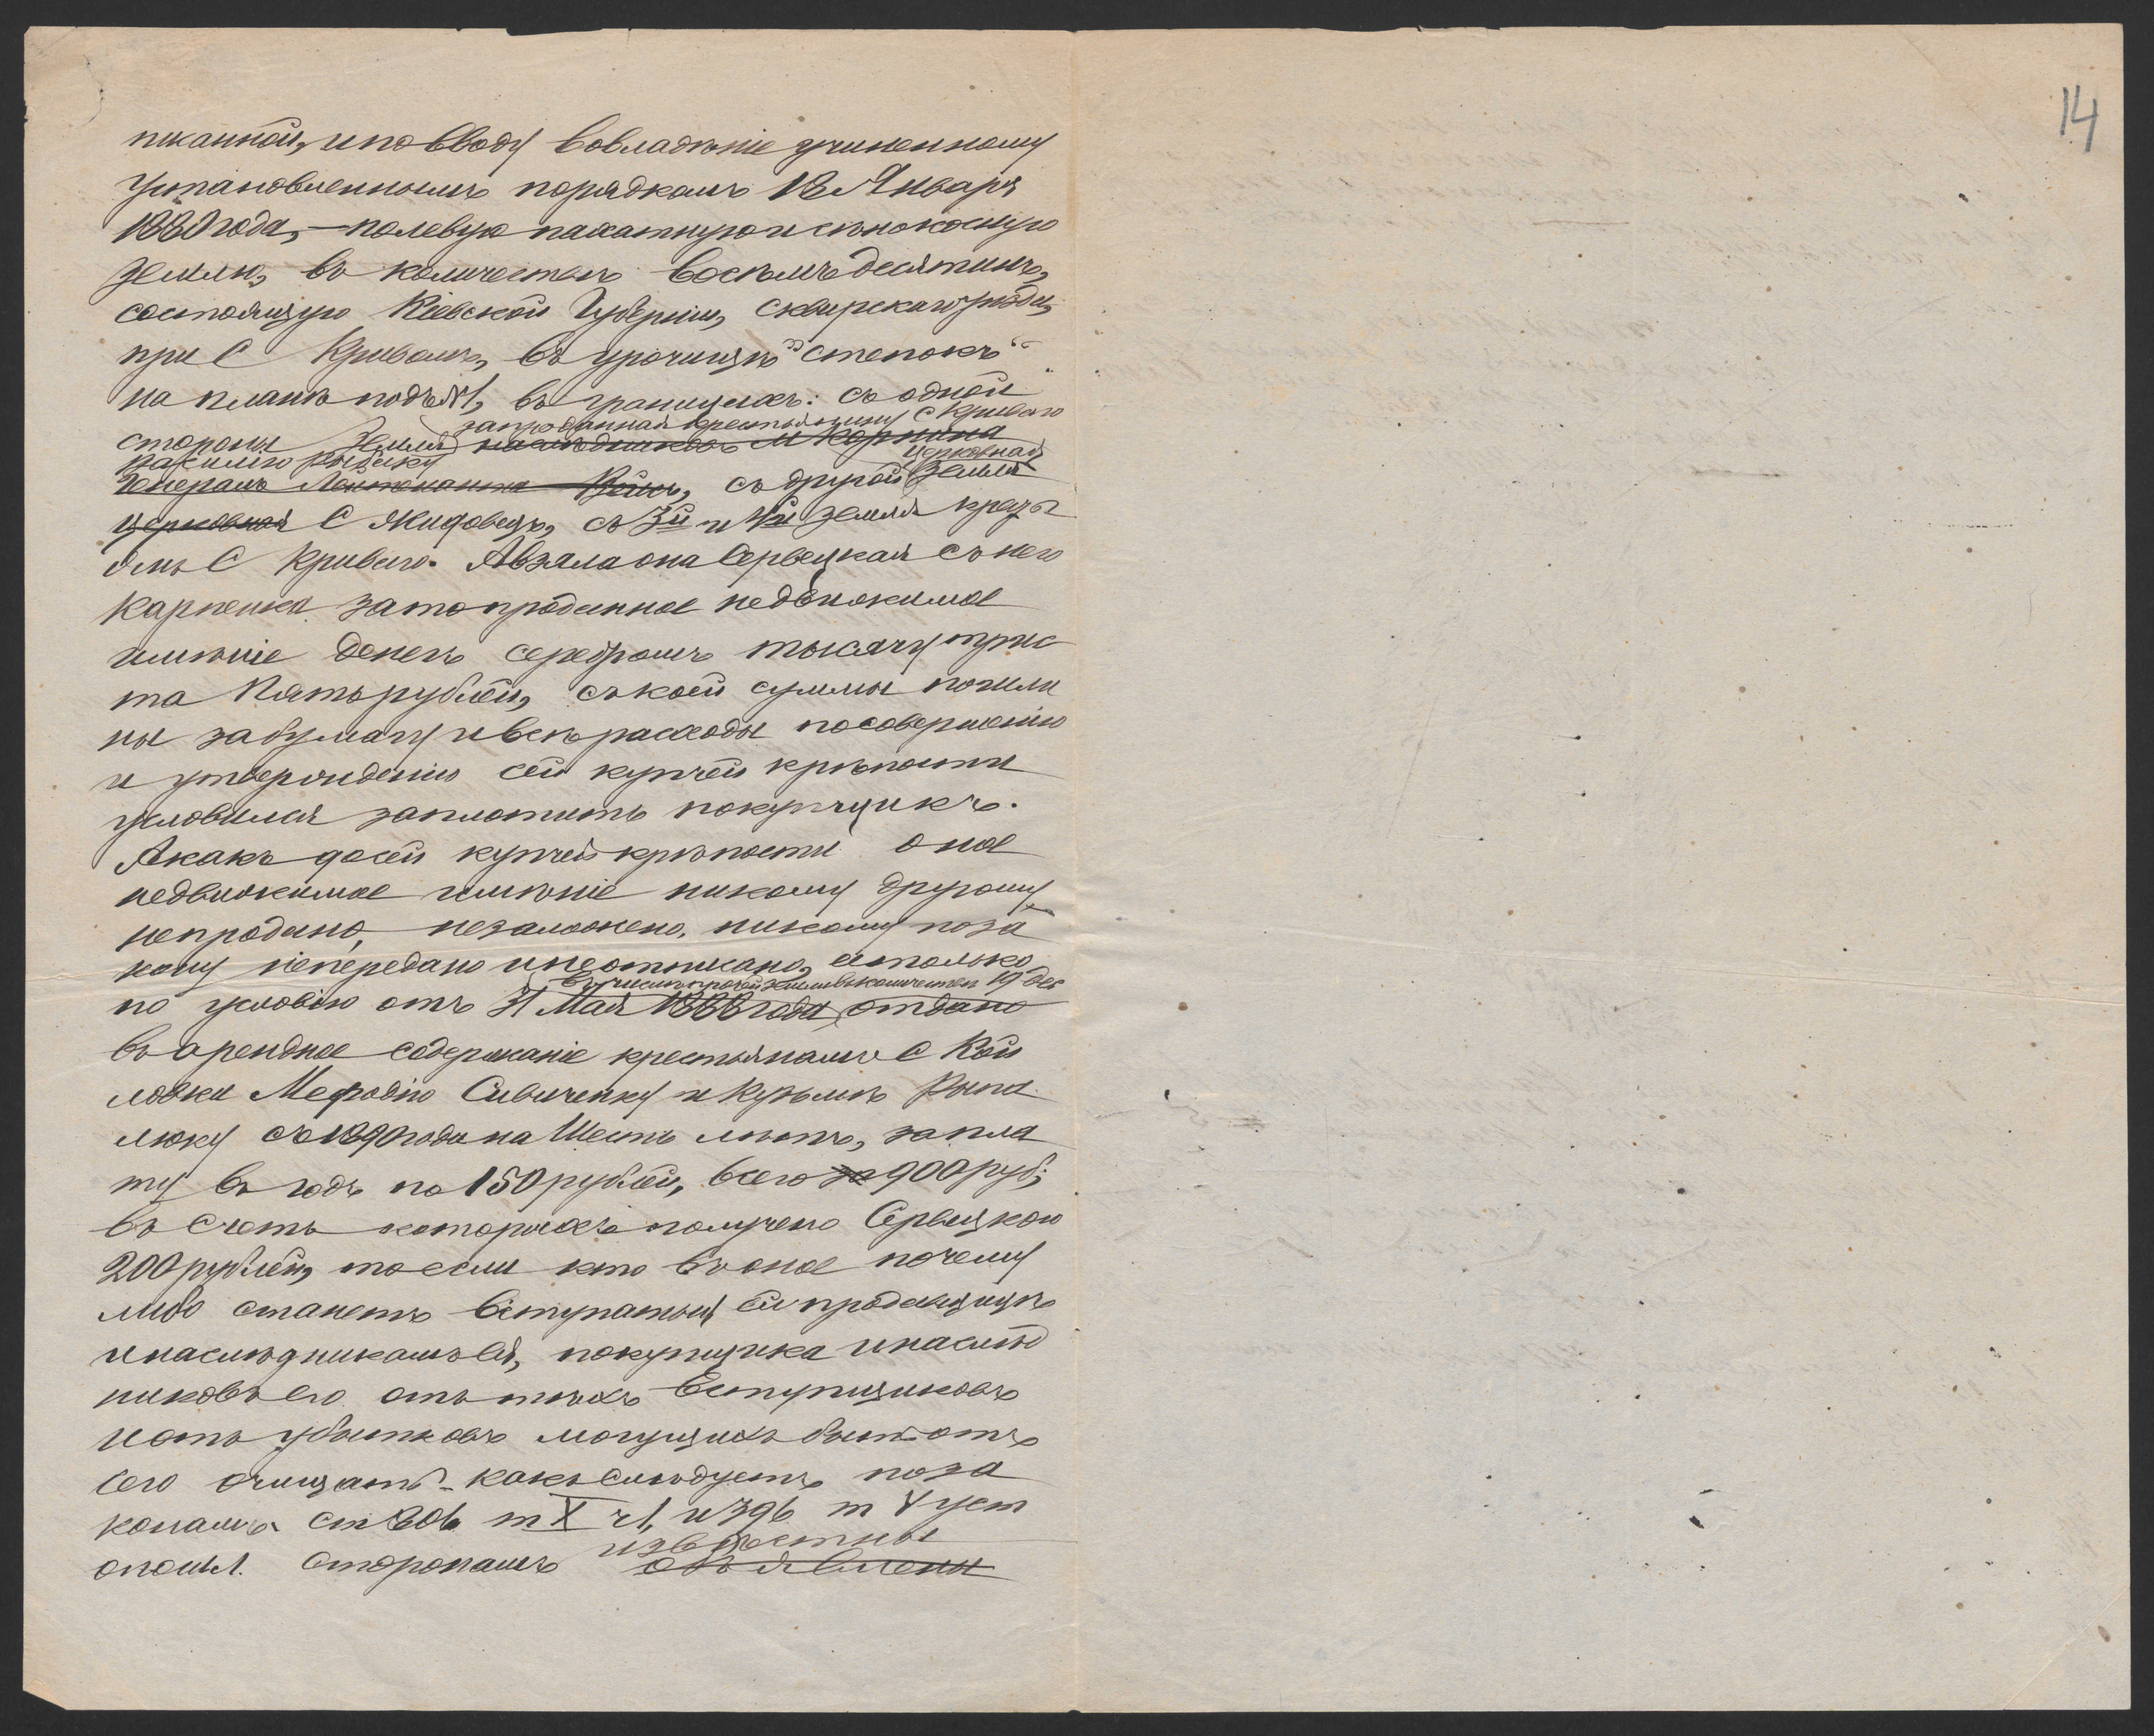 14
писанной, и по вводу во владѣніе учиненному
установленнымъ порядкомъ 18 Января
1880 года, — полевую пахатную и сѣнокосную
землю, въ количествѣ восемь десятинъ,
состоящую Кіевской Губерніи, Сквирскаго уѣзда,
при С Кривомъ, въ урочищѣ "степокъ"
на планѣ подъ №1, въ границахъ: съ одной
запроданная крестьянину С Криваго
стороны Земля наслѣдниковъ М Корнина
Василію
Генералъ Лейтенанта, съ другой церковная земля
церковная С Жидовецъ, съ 3й и 4й земля кресть
янъ С Криваго. А взяла она Сервецкая съ него
Карпенка за то проданное недвижимое
имѣніе денегъ серебромъ тысячу трис
та пять рублей, съ коей суммы пошли
ны за бумагу и всѣ расходы по совершенію
и утвержденію сей купчей крѣпости
условился заплотить покупщикъ.
А какъ до сей купчей крѣпости оное
недвижимое имѣніе никому другому
непродано, незаложено, никому поза
кому непередано и неотписано, а только
въ числѣ прочей земли въ количествѣ 19 дес
по условію отъ 31 Мая 1888 года отдано
въ арендное содержаніе крестьянамъ С Кой
ловки Мефодію Сивиченку и Кузьмѣ Рыпа
люку съ 1890 года на Шесть лѣтъ, запла
ту въ годъ по 150 рублей, всего за 900 руб;
въ Счетъ которыхъ получено Сервецкою
200 рублей, то если кто въ оное почему
либо станетъ вступаться ей продавщицѣ
и наслѣдникамъ ея, покупщика и наслѣд
никовъ его отъ тѣхъ вступщиковъ
и отъ убытковъ могущихъ быть отъ
сего очищать какъ слѣдуетъ поза
конамъ ст т X ч 1, и 396 т V уст
опошл. Сторонамъ известны
объявлены